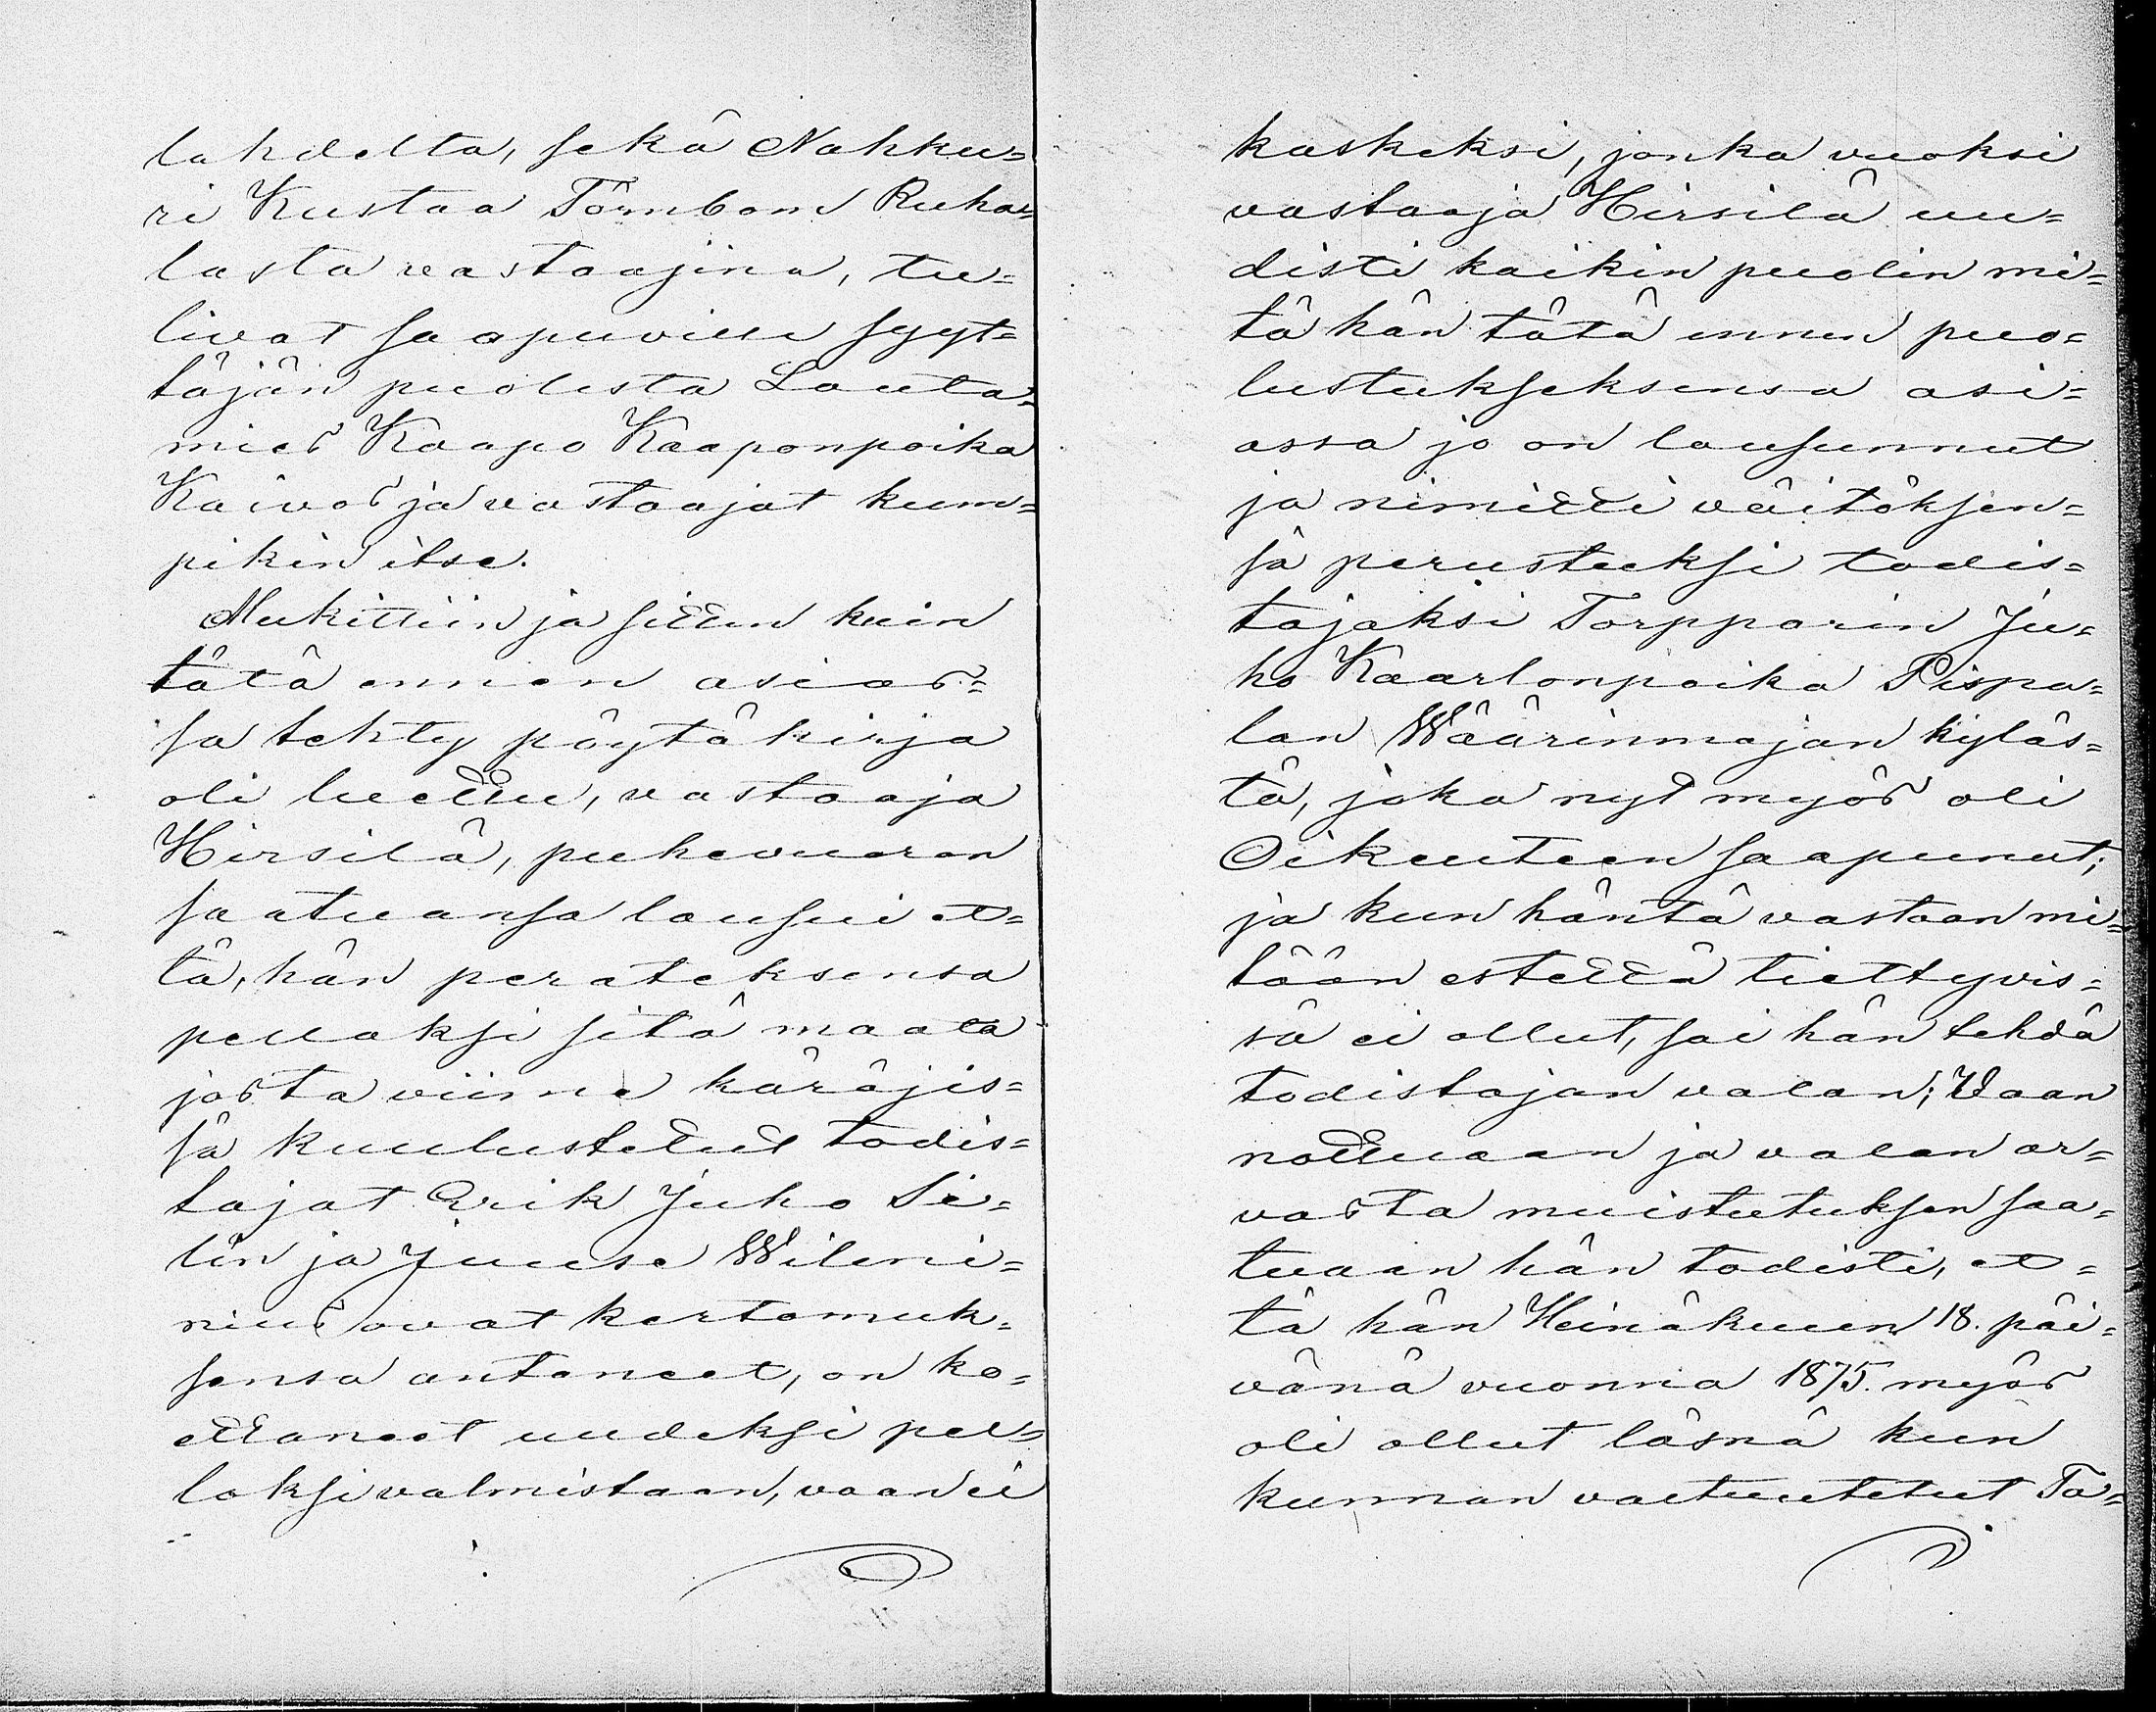 lahdelta, sekä Nahku=
ri Kustaa Törnbom Ruha=
lasta vastaajina, tu=
livat saapuville syyt=
täjän puolesta Lauta=
mies Kaapo Kaaponpoika
Kaivos ja vastaajat kum=
pikin itse.
Mukittiin ja sitten kuin
tätä ennen asias=
sa tehty pöytäkirja
oli luettu, vastaaja
Hirsilä, puhevuoron
saatuansa lausui et=
tä, hän perateksensa
pelloksi sitä maata
josta viime käräjis=
sä kuulustellut todis=
tajat Erik Juho Si=
lin ja Juuse Wileni=
nius ovat kertomuk=
sensa antaneet, on ko=
ettaneet uudeksi pel=
loksi valmistaan, vaan ei
kaskeksi, jonka vuoksi
vastaaja Hirsilä uu=
disti kaikin puolin mi=
tä hän tätä ennen puo=
lustukseksensa asi=
assa jo on lausunnut
ja nimitti väitöksen=
sä perustuksi todis=
tajaksi Torpparin Ju=
ho Kaarlonpoika Pispa=
lan Wäärinmajan kyläs=
tä, joka nyt myös oli
Oikeuteen saapunut;
ja kun häntä vastaan mi=
tään estettä tiettyvis=
sä ei ollut, sai hän tehdä
todistajan valan; Vaan
nottuaan ja valan ar=
vosta muistutuksen saa=
tuaan hän todisti, et=
tä hän Heinäkuun 18. päi=
vänä vuonna 1875. myös
oli ollut läsnä kun
kunnan valtuutetut Ta=